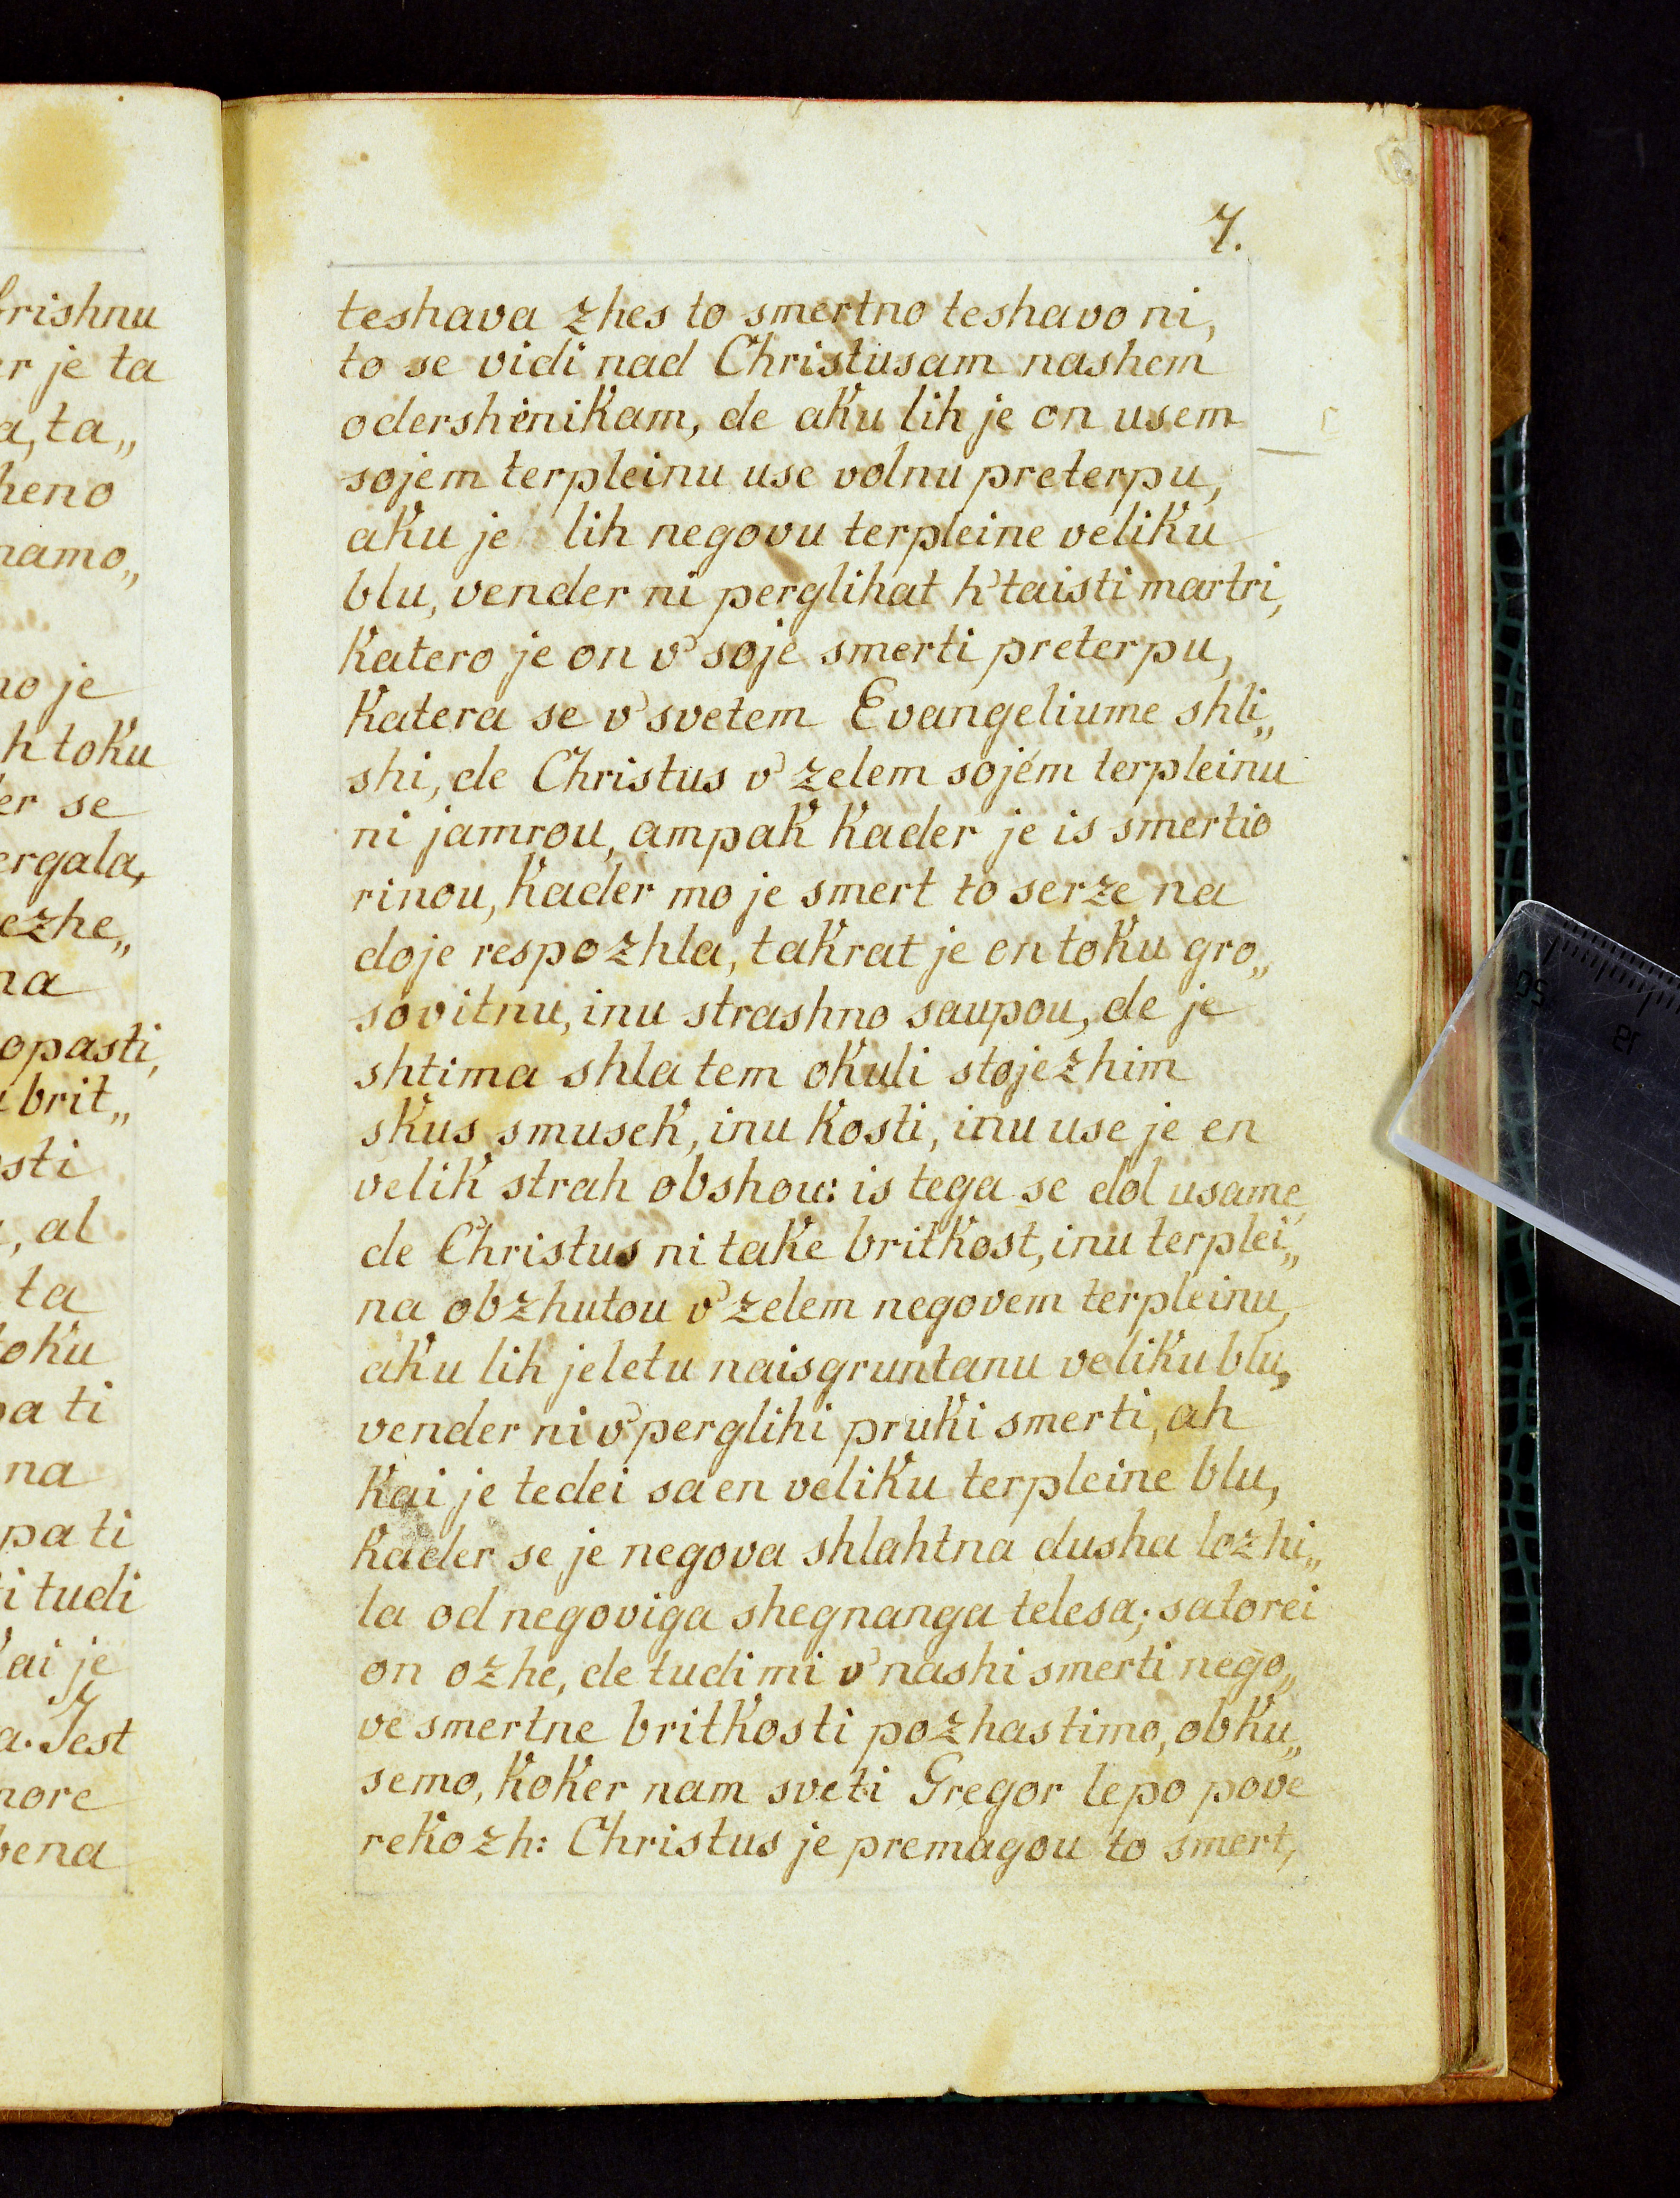 frishnu
er je ta
a, ta„
heno
namo„
no je
h toku
er se
ergala,
ezhe„
na
opasti,
brit„
sti
, al
ta
toku
pa ti
na
pa ti
i tudi
kai je
a. Jest
more
vena
7.
teshava zhes to smertno teshavo ni,
to se vidi nad Christusam nashem
odershenikam, de aku lih je on usem
sojem terpleinu use volnu preterpu,
aku je lih negovu terpleine veliku
blu, vender ni perglihat h'taisti martri,
katero je on v'soje smerti preterpu,
katera se v'svetem Evangeliume shli„
shi, de Christus v'zelem sojem terpleinu
ni jamrou, ampak kader je is smertio
rinou, kader mo je smert to serze na
doje respozhla, takrat je en toku gro„
sovitnu, inu strashno saupou, de je
shtima shla tem okuli stojezhim
skus smusek, inu kosti, inu use je en
velik strah obshou: is tega se dol usame,
de Christus ni take britkost, inu terplei„
na obzhutou v'zelem negovem terpleinu,
aku lih je letu naisgruntanu veliku blu,
vender ni v'perglihi pruki smerti, ah
kai je tedei sa en veliku terpleine blu,
kader se je negova shlahtna dusha lozhi„
la od negoviga shegnanga telesa; satorei
on ozhe, de tudi mi v'nashi smerti nego„
ve smertne britkosti pozhastimo, obku„
semo, koker nam sveti Gregor lepo pove
rekozh: Christus je premagou to smert,